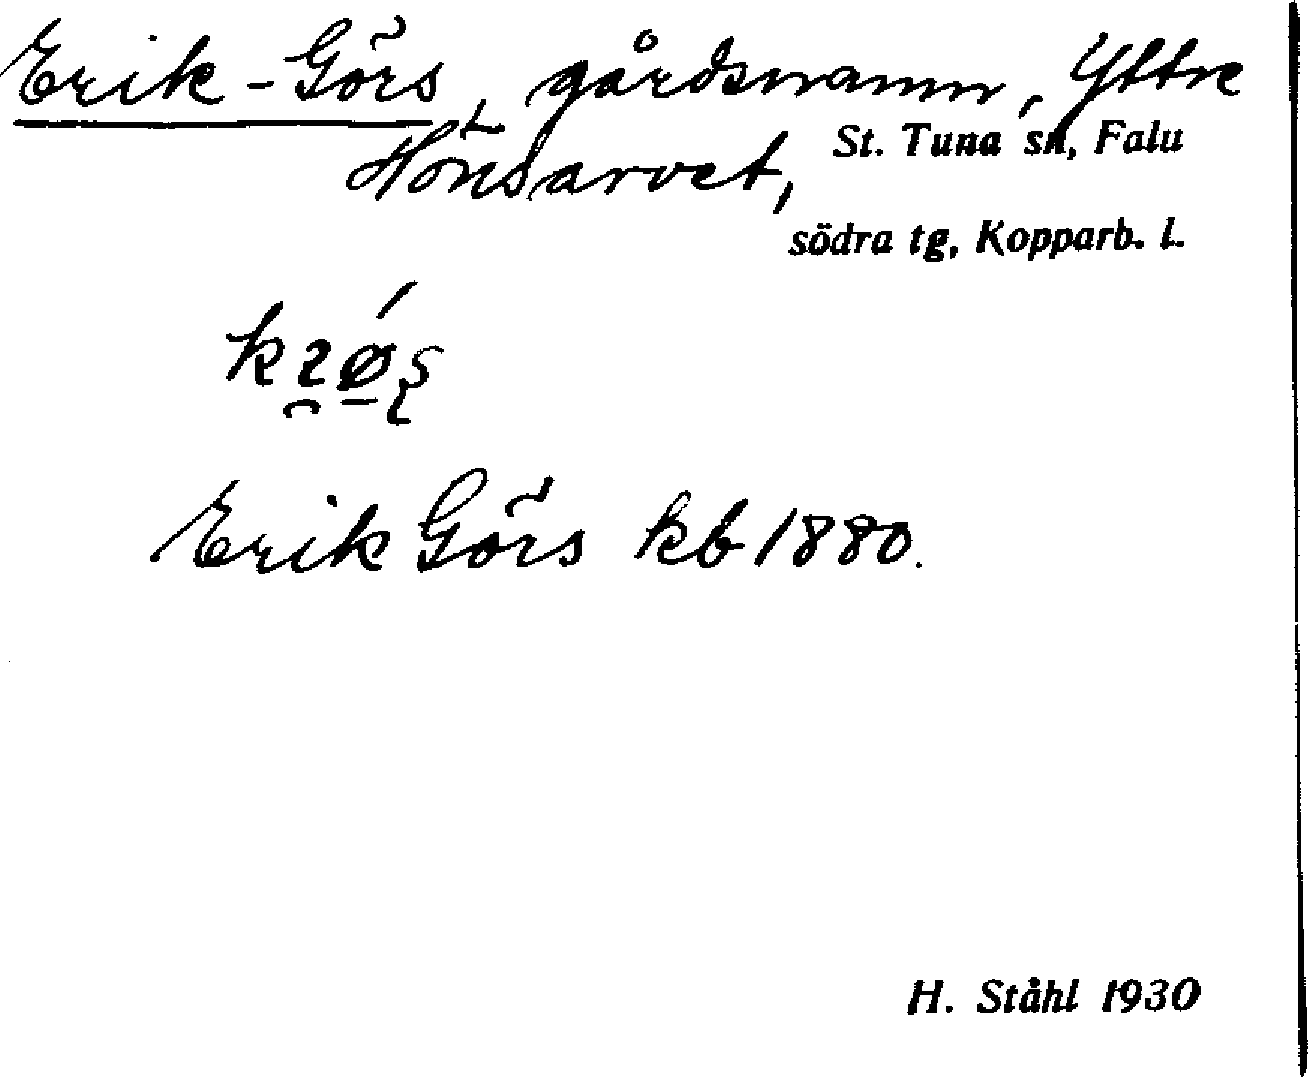 Erik-Görs, gårdsnamn, Yttre
Hönsarvet,
St. Tuna sn, Falu
södra tg, Kopparb. l.
Erik Görs kb 1880.
H. Ståhl 1930